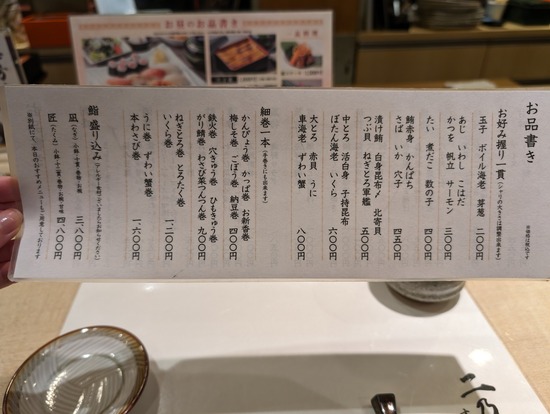 お品書き
※価格は税込です
お好み握り一貫（シャリの大きさは調整出来ます）
玉子 ボイル海老 芽葱 二〇〇円
あじ いわし こはだ
かつを 帆立 サーモン 三〇〇円
たい 煮だこ 数の子 四〇〇円
鮪赤身 かんぱち
さば いか 穴子 四五〇円
漬け鮪 白身昆布〆 北寄貝
つぶ貝 ねぎとろ軍艦 五〇〇円
中とろ 活白身 子持昆布
ぼたん海老 いくら 六〇〇円
大とろ 赤貝 うに
車海老 ずわい蟹 八〇〇円
細巻一本（手巻きにも出来ます）
かんぴょう巻 かっぱ巻 お新香巻
梅しそ巻 ごぼう巻 納豆巻 四〇〇円
鉄火巻 穴きゅう巻 ひもきゅう巻
がり鯖巻 わさび菜つんつん巻 九〇〇円
ねぎとろ巻 とろたく巻
いくら巻 一、二〇〇円
うに巻 ずわい蟹巻
本わさび巻 一、六〇〇円
鮨盛り込み
凪（なぎ） 三、八〇〇円
匠（たくみ） 四、八〇〇円
※別紙にて、本日のおすすめメニューもご用意しております
お昼のお品書き